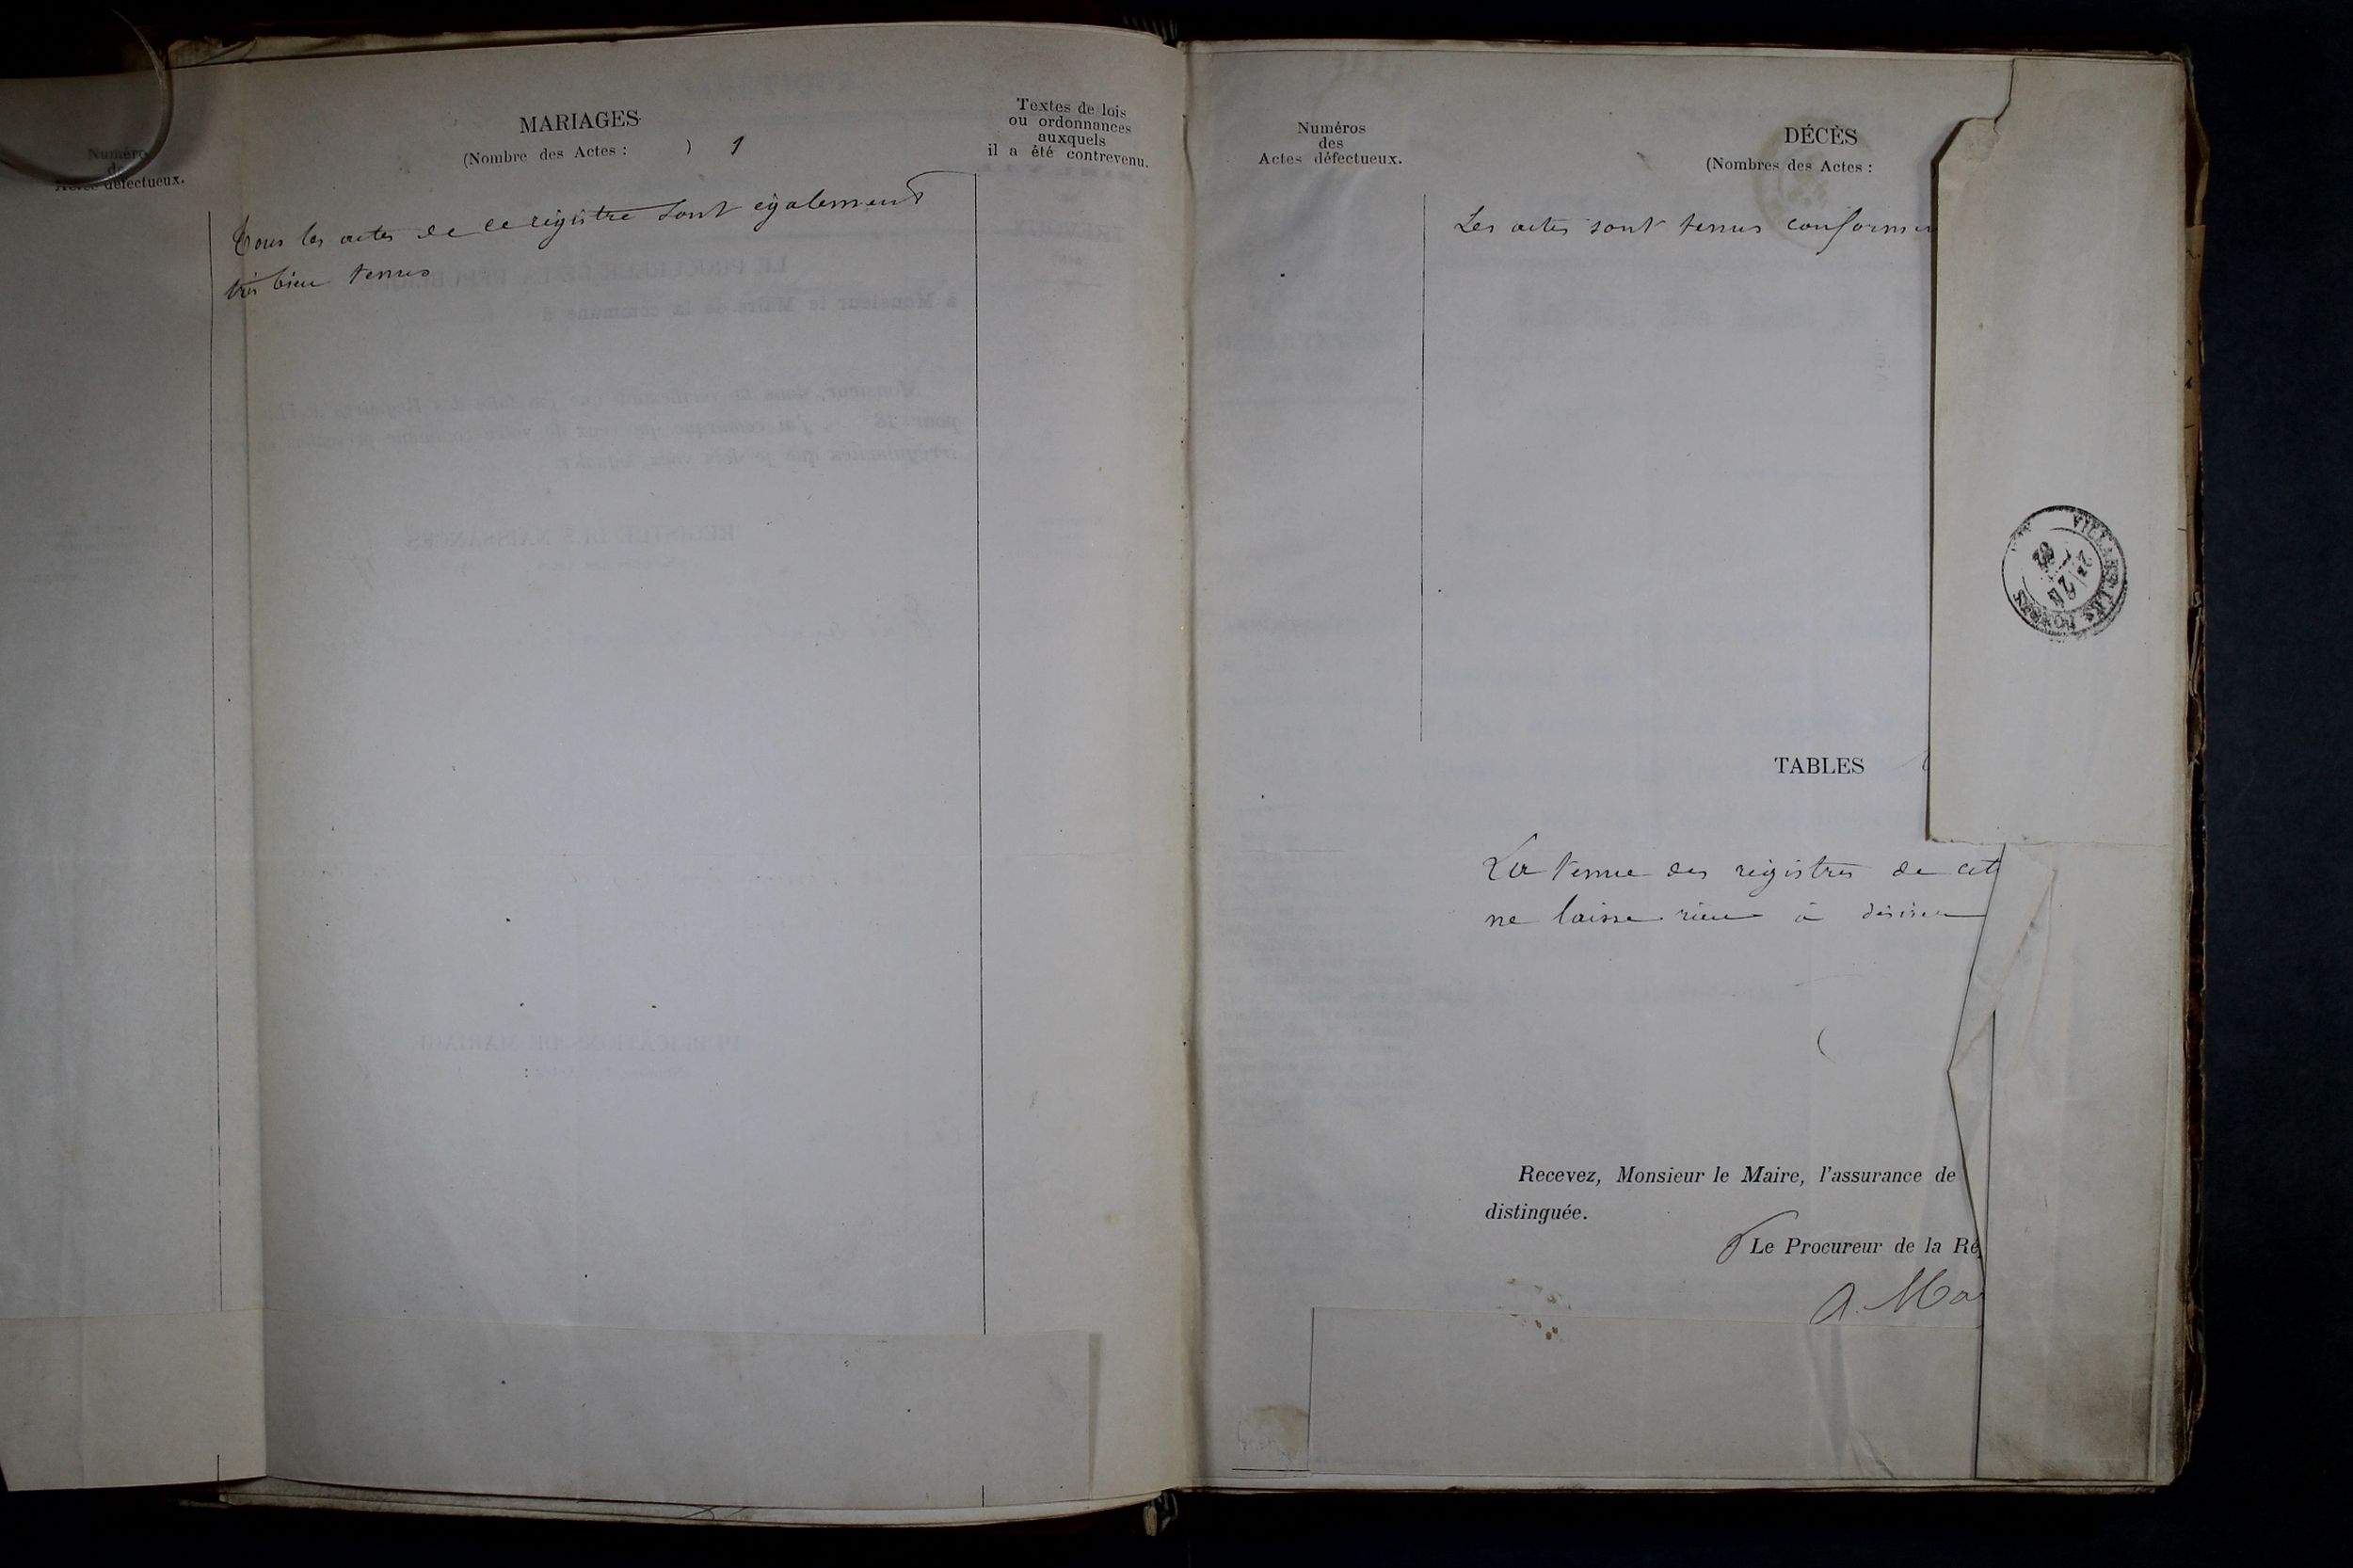 Numéros
des
Actes défectueux.
MARIAGES
(Nombre des Actes : ) 1
Textes de lois
ou ordonnances
auxquels
il a été contrevenu.
Tous les actes de ce registre sont également
très bien tenus
Numéros
des
Actes défectueux.
DÉCÈS
(Nombres des Actes :
Les actes sont tenus conformé
TABLES
La tenue des registres de cet
ne laisse rien à désirer
Recevez, Monsieur le Maire, l'assurance de
distinguée.
Le Procureur de la Ré
A. Ma